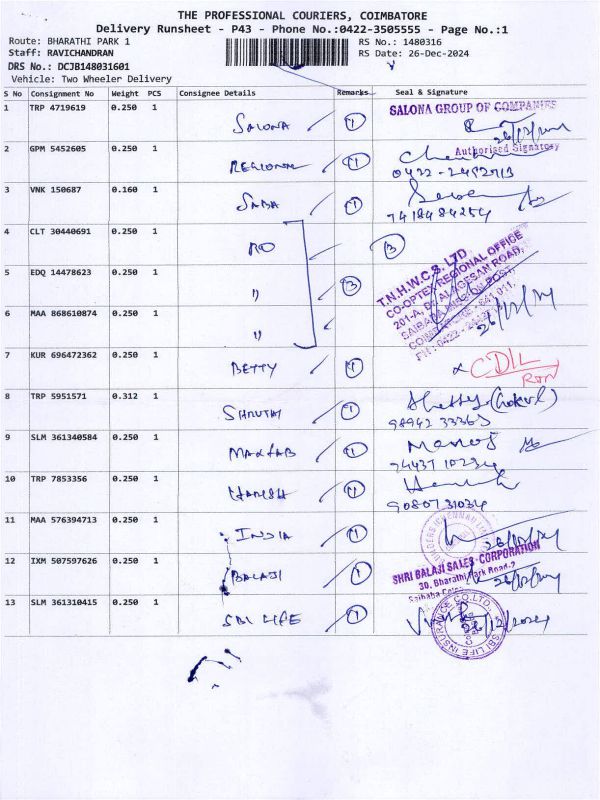 THE PROFESSIONAL COURIERS, COIMBATORE
Delivery Runsheet - P43 - Phone No.:0422-3505555 - Page No.:1
Route: BHARATHI PARK 1 RS No.: 1480316
Staff: RAVICHANDRAN RS Date: 26-Dec-2024
DRS No.: DCJB148031601
Vehicle: Two Wheeler Delivery
S No Consignment No Weight PCS Consignee Details Remarks Seal & Signature
1 TRP 4719619 0.250 1 SALONA 1 SALONA GROUP OF COMPANIES
Authorised Signatory
2 GPM 5452605 0.250 1 REGIONAL 1
3 VNK 150687 0.160 1 SABA 1
7418484254
4 CLT 30440691 0.250 1 RO 3
5 EDQ 14478623 0.250 1 " 3 T.N.H.W.C.S. LTD
CO-OPTEX REGIONAL OFFICE
6 MAA 868610874 0.250 1 "
7 KUR 696472362 0.250 1 BETTY 1
8 TRP 5951571 0.312 1 SHRUTHI 1
98942 33365
9 SLM 361340584 0.250 1 1 Manoj
10 TRP 7853356 0.250 1 HARISH 1
9080731034
11 MAA 576394713 0.250 1 INDIA 1
12 IXM 507597626 0.250 1 BALAJI 1 SHRI BALAJI SALES CORPORATION
30, Bharathi Park Road-2
13 SLM 361310415 0.250 1 SBI LIFE 1 SBI LIFE INSURANCE CO.LTD.